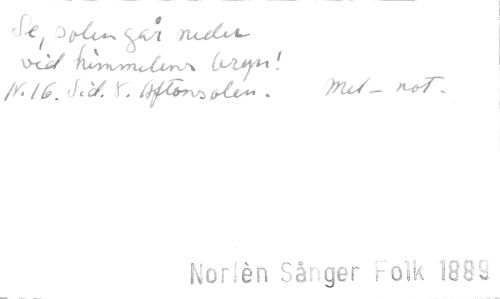 Se, solen går neder
vid himmelens bryn!
N. 16. Sid. 8. Aftonsolen. Mel-not.
Norlèn Sånger Folk 1889